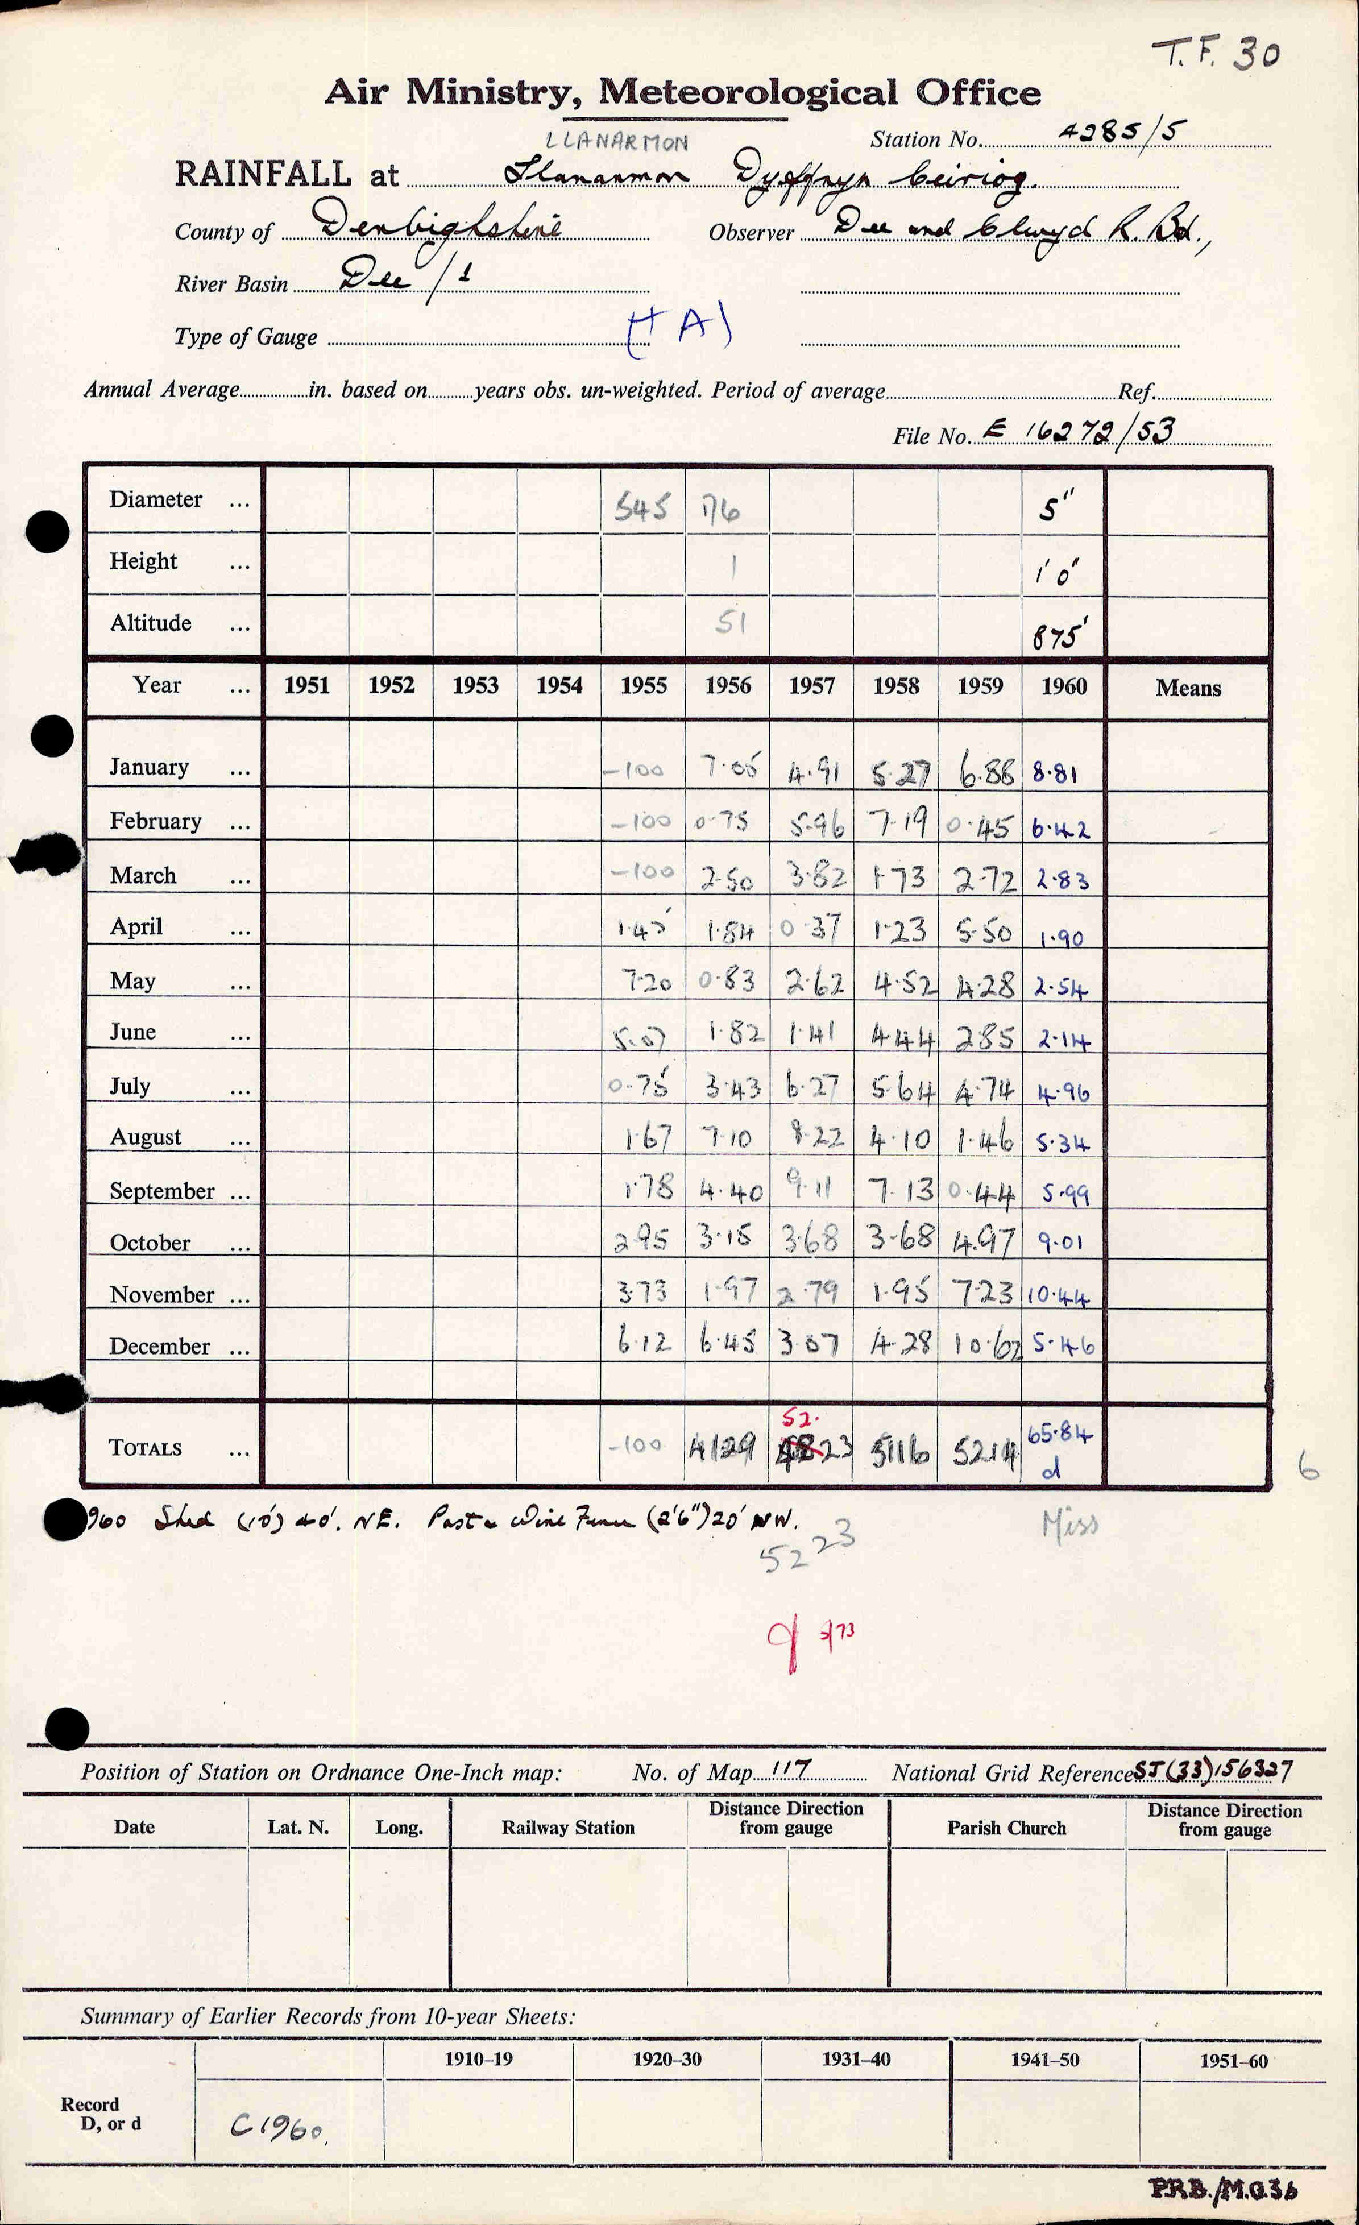 T.F. 30
Air Ministry, Meteorological Office
LLANARMON Station No. 4285/5
RAINFALL at Llanarmon Dyffryn Ceiriog.
County of Denbighshire Observer Dee and Clwyd R. Bd.,
River Basin Dee / 1
Type of Gauge (+ A)
Annual Average in. based on years obs. un-weighted. Period of average Ref.
File No. E 16272/53
Diameter ... 545 176 5"
Height ... 1 1' 0"
Altitude ... 51 875'
Year ... 1951 1952 1953 1954 1955 1956 1957 1958 1959 1960 Means
January ... -100 7.05 4.91 5.27 6.88 8.81
February ... -100 0.75 5.96 7.19 0.45 6.42
March ... -100 2.50 3.82 1.73 2.72 2.83
April ... 1.45 1.84 0.37 1.23 5.50 1.90
May ... 7.20 0.83 2.62 4.52 4.28 2.54
June ... 5.07 1.82 1.41 4.44 2.85 2.14
July ... 0.75 3.43 6.27 5.64 4.74 4.96
August ... 1.67 7.10 8.22 4.10 1.46 5.34
September ... 1.78 4.40 9.11 7.13 0.44 5.99
October ... 2.95 3.15 3.68 3.68 4.97 9.01
November ... 3.73 1.97 2.79 1.95 7.23 10.44
December ... 6.12 6.45 3.07 4.28 10.62 5.46
52.
TOTALS ... -100 4129 4823 5116 5214 65.84
d
6
960 Shed (10') 40'. NE. Post & Wire Fence (2'6") 20' NW.
Miss
5223
9/73
Position of Station on Ordnance One-Inch map: No. of Map 117 National Grid Reference SJ(33)156327
Date Lat. N. Long. Railway Station Distance Direction from gauge Parish Church Distance Direction from gauge
Summary of Earlier Records from 10-year Sheets:
1910–19 1920–30 1931–40 1941–50 1951–60
Record
D, or d C1960.
P.R.B./M.O.36